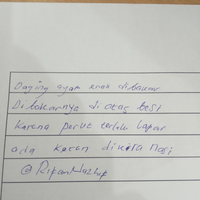 Daging ayam enak dibakar
Dibakarnya di atas besi
Karena perut terlalu lapar
ada karen dikira nasi
@RifanNazhip